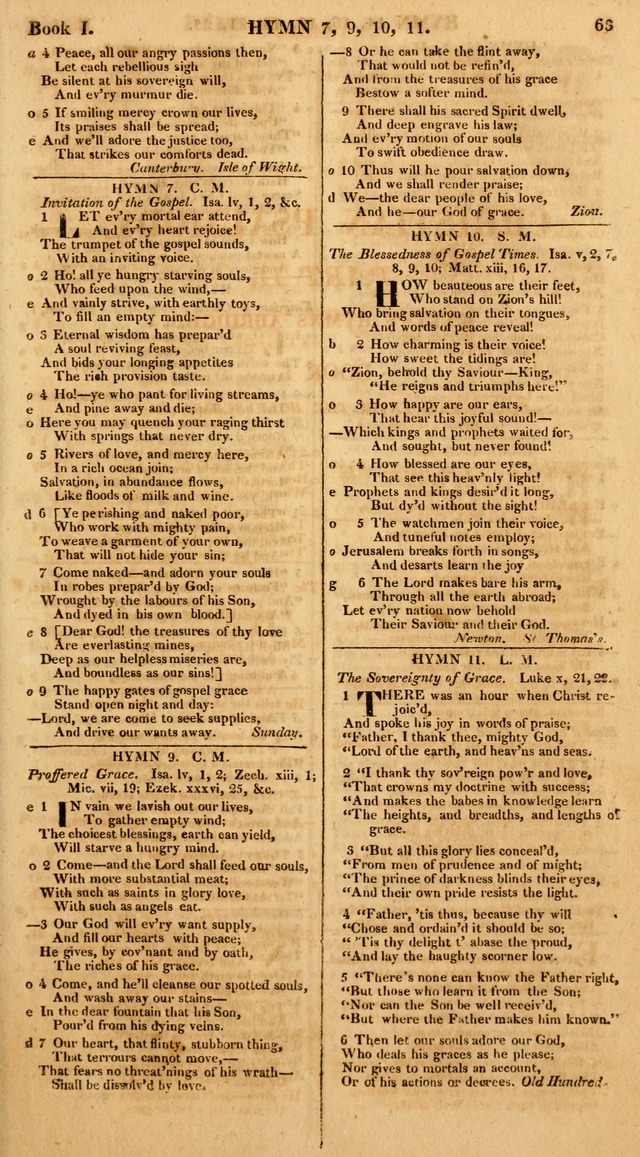 Book I.
HYMN 7, 9, 10, 11.
63
a 4 Peace, all our angry passions then,
Let each rebellious sigh
Be silent at his sovereign will,
And ev'ry murmur die.
o 5 If smiling mercy crown our lives,
Its praises shall be spread;
e And we'll adore the justice too,
That strikes our comforts dead.
Canterbury. Isle of Wight.
HYMN 7. C. M.
Invitation of the Gospel. Isa. lv, 1, 2, &c.
1 LET ev'ry mortal ear attend,
And ev'ry heart rejoice!
The trumpet of the gospel sounds,
With an inviting voice.
o 2 Ho! all ye hungry starving souls,
Who feed upon the wind,—
e And vainly strive, with earthly toys,
To fill an empty mind:—
o 3 Eternal wisdom has prepar'd
A soul reviving feast,
And bids your longing appetites
The rich provision taste.
o 4 Ho!—ye who pant for living streams,
e And pine away and die;
o Here you may quench your raging thirst
With springs that never dry.
o 5 Rivers of love, and mercy here,
In a rich ocean join;
Salvation, in abundance flows,
Like floods of milk and wine.
d 6 [Ye perishing and naked poor,
Who work with mighty pain,
To weave a garment of your own,
That will not hide your sin;
7 Come naked—and adorn your souls
In robes prepar'd by God;
Wrought by the labours of his Son,
And dyed in his own blood.]
e 8 [Dear God! the treasures of thy love
Are everlasting mines,
Deep as our helpless miseries are,
And boundless as our sins!]
o 9 The happy gates of gospel grace
Stand open night and day:
—Lord, we are come to seek supplies,
And drive our wants away. Sunday.
HYMN 9. C. M.
Proffered Grace. Isa. lv, 1, 2; Zech. xiii, 1;
Mic. vii, 19; Ezek. xxxvi, 25, &c.
e 1 IN vain we lavish out our lives,
To gather empty wind;
The choicest blessings, earth can yield,
Will starve a hungry mind.
o 2 Come—and the Lord shall feed our souls,
With more substantial meat;
With such as saints in glory love,
With such as angels eat.
—3 Our God will ev'ry want supply,
And fill our hearts with peace;
He gives, by cov'nant and by oath,
The riches of his grace.
o 4 Come, and he'll cleanse our spotted souls,
And wash away our stains—
e In the dear fountain that his Son,
Pour'd from his dying veins.
d 7 Our heart, that flinty, stubborn thing,
That terrours cannot move,—
That fears no threat'nings of his wrath—
Shall be dissolv'd by love.
—8 Or he can take the flint away,
That would not be refin'd,
And from the treasures of his grace
Bestow a softer mind.
9 There shall his sacred Spirit dwell,
And deep engrave his law;
And ev'ry motion of our souls
To swift obedience draw.
o 10 Thus will he pour salvation down,
And we shall render praise;
d We—the dear people of his love,
And he—our God of grace. Zion.
HYMN 10. S. M.
The Blessedness of Gospel Times. Isa. v, 2, 7,
8, 9, 10; Matt. xiii, 16, 17.
1 HOW beauteous are their feet,
Who stand on Zion's hill!
Who bring salvation on their tongues,
And words of peace reveal!
b 2 How charming is their voice!
How sweet the tidings are!
o "Zion, behold thy Saviour—King,
"He reigns and triumphs here!"
o 3 How happy are our ears,
That hear this joyful sound!—
—Which kings and prophets waited for,
And sought, but never found!
o 4 How blessed are our eyes,
That see this heav'nly light!
e Prophets and kings desir'd it long,
But dy'd without the sight!
o 5 The watchmen join their voice,
And tuneful notes employ;
o Jerusalem breaks forth in songs,
And desarts learn the joy
g 6 The Lord makes bare his arm,
Through all the earth abroad;
Let ev'ry nation now behold
Their Saviour and their God.
Newton. St Thomas's.
HYMN 11. L. M.
The Sovereignty of Grace. Luke x, 21, 22.
1 THERE was an hour when Christ re-
joic'd,
And spoke his joy in words of praise;
"Father, I thank thee, mighty God,
"Lord of the earth, and heav'ns and seas.
2 "I thank thy sov'reign pow'r and love,
"That crowns my doctrine with success;
"And makes the babes in knowledge learn
"The heights, and breadths, and lengths of
grace.
3 "But all this glory lies conceal'd,
"From men of prudence and of might;
"The prince of darkness blinds their eyes,
"And their own pride resists the light.
4 "Father, 'tis thus, because thy will
"Chose and ordain'd it should be so;
" 'Tis thy delight t' abase the proud,
"And lay the haughty scorner low.
5 "There's none can know the Father right,
"But those who learn it from the Son;
"Nor can the Son be well receiv'd,
"But where the Father makes him known."
6 Then let our souls adore our God,
Who deals his graces as he please;
Nor gives to mortals an account,
Or of his actions or decrees. Old Hundred.